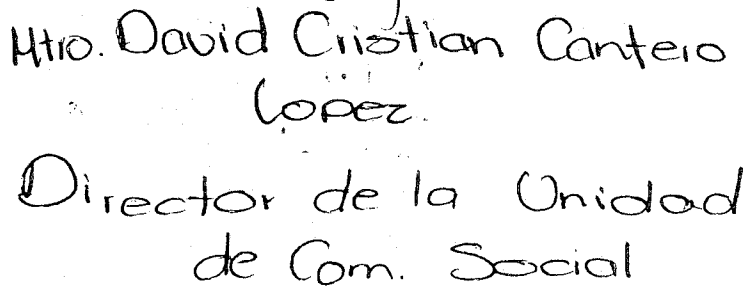 Mtro. David Cristian Cantero
Lopez.
Director de la Unidad
de Com. Social